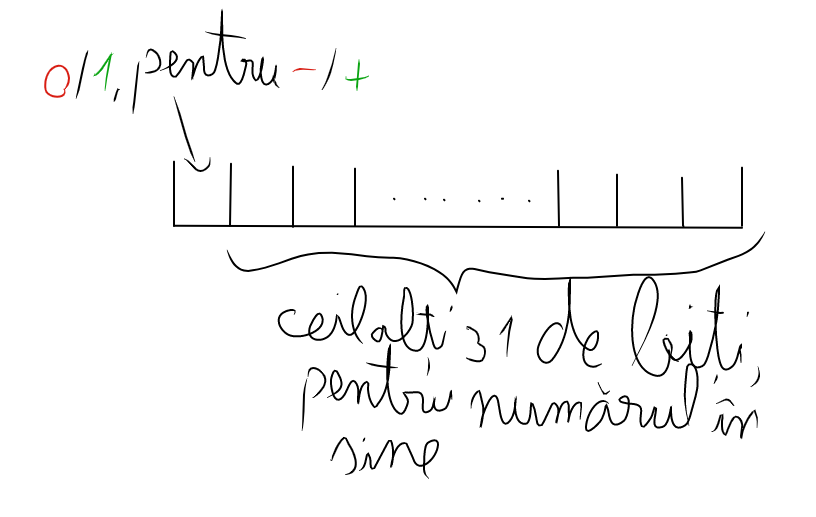 0/1, pentru -/+
ceilalți 31 de biți,
pentru numărul în
sine